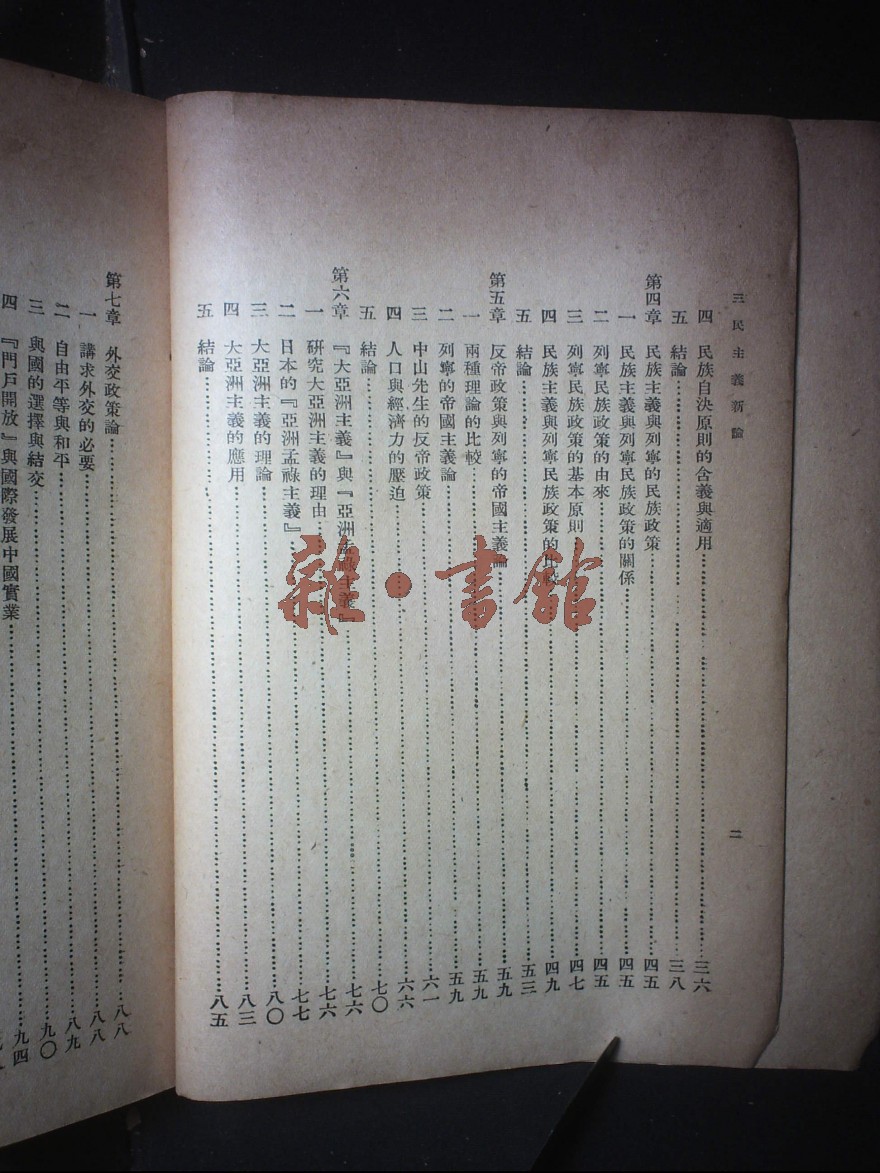 三民主義新論
二
四 民族自決原則的含義與適用……三六
五 結論……三八
第四章 民族主義與列寧的民族政策……四五
一 民族主義與列寧民族政策的關係……四五
二 列寧民族政策的由來……四五
三 列寧民族政策的基本原則……四七
四 民族主義與列寧民族政策的比較……四九
五 結論……五三
第五章 反帝政策與列寧的帝國主義論……五九
一 兩種理論的比較……五九
二 列寧的帝國主義論……五九
三 中山先生的反帝政策……六一
四 人口與經濟力的壓迫……六六
五 結論……七〇
第六章 『大亞洲主義』與『亞洲孟祿主義』……七六
一 研究大亞洲主義的理由……七六
二 日本的『亞洲孟祿主義』……七七
三 大亞洲主義的理論……八〇
四 大亞洲主義的應用……八三
五 結論……八五
第七章 外交政策論……八八
一 講求外交的必要……八八
二 自由平等與和平……八九
三 與國的選擇與結交……九〇
四 『門戶開放』與國際發展中國實業……九四
雜·書館